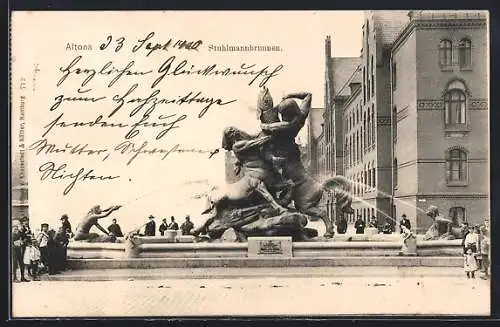 Altona 23 Sept 1900 Stuhlmannbrunnen.
Herzlichen Glückwunsch
zum Hochzeittage
senden Euch
Mutter, Schwestern,
Nichten.
Knackstedt & Näther, Hamburg 772